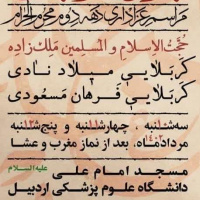 مراسم عزاداری دهه دوم محرم الحرام
حجت الاسلام و المسلمین ملک زاده
کربلایی میلاد نادی
کربلایی فرهان مسعودی
سه شنبه، چهارشنبه و پنج شنبه
مردادماه، بعد از نماز مغرب و عشا
مسجد امام علی علیه السلام
دانشگاه علوم پزشکی اردبیل